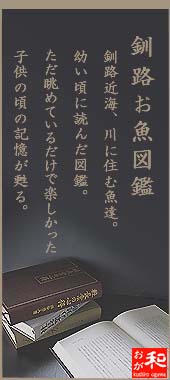 釧路お魚図鑑
釧路近海、川に住む魚達。
幼い頃に読んだ図鑑。
ただ眺めているだけで楽しかった
子供の頃の記憶が甦る。
おが和
kushiro ogawa